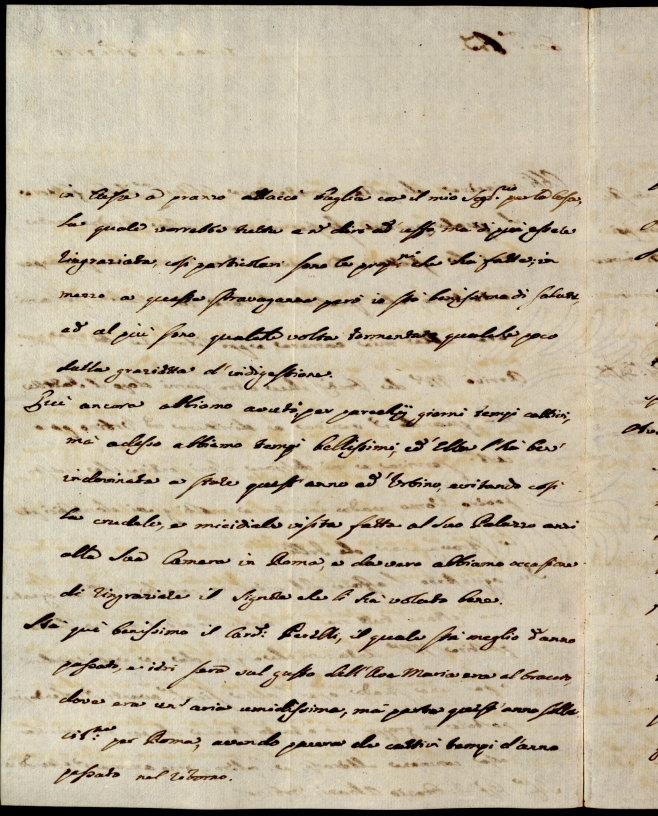 in testa a pranzo attaccò briglia con il mio Seg.rio per la Casa,
la quale vorrebbe tutta a n. ad esso, ma di più essere
ringraziata, così particolari sono le che ha fatte; in
mezzo a queste stravaganze però io stò benissimo di salute,
ed al più sono qualche volta tormentato qualche poco
dalla grazietta d'indigestione.
Quì ancora abbiamo avuti per parecchij giorni tempi cattivi,
mà adesso abbiamo tempi bellissimi, ed Ella l'hà ben'
indovinata a stare quest'anno ad Urbino, evitando così
la crudele, e micidiale visita fatta al Suo Palazzo anzi
alla Sua Camera in Roma, e davvero abbiamo occasione
di ringraziare il che li hà voluto bene.
Stà quì benissimo il Card. Perelli, il quale stà meglio d'anno
passato, e ieri sera sul gusto dell'Ave Maria era al
dove era un'aria umidissima, mà parte quest'anno
per Roma, avendo paura de cattivi tempi d'anno
passato nel ritorno.